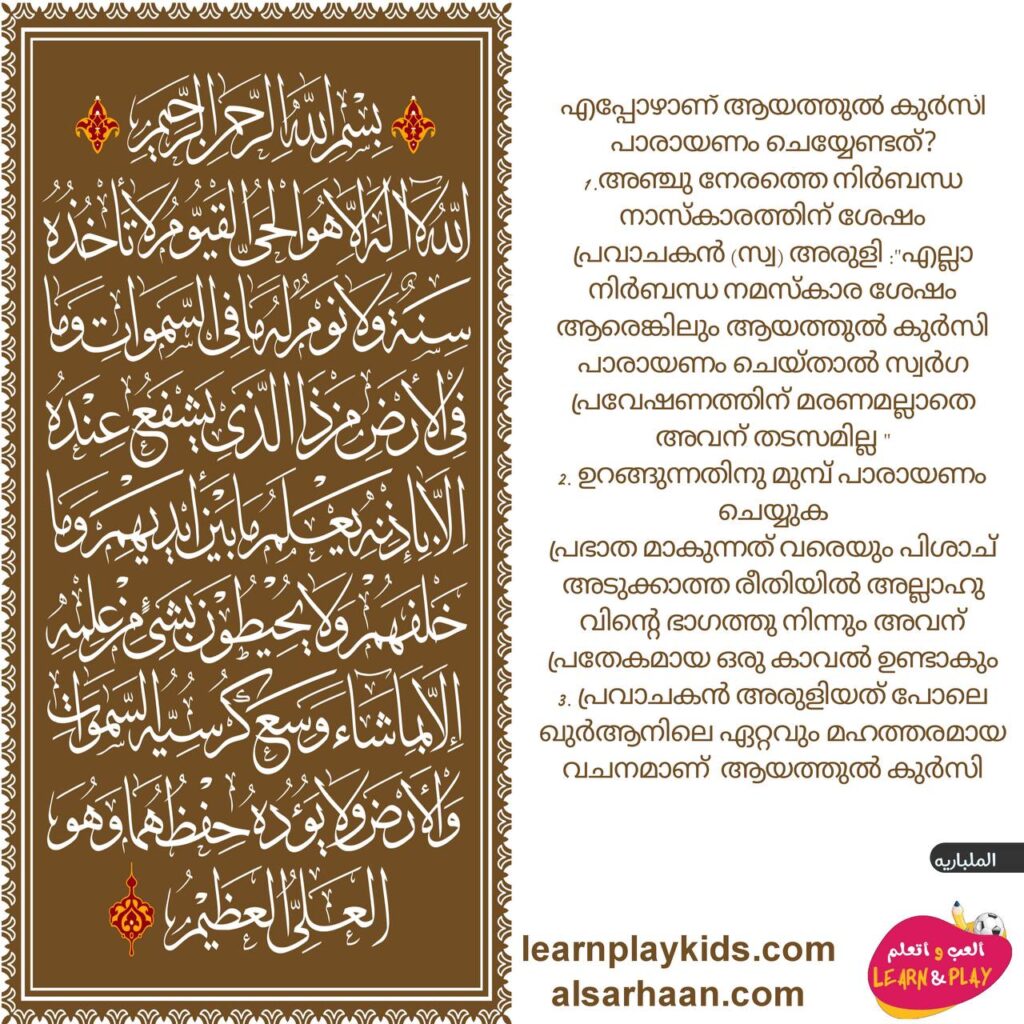 بِسْمِ اللَّهِ الرَّحْمَنِ الرَّحِيمِ
اللَّهُ لَا إِلَهَ إِلَّا هُوَ الْحَيُّ الْقَيُّومُ لَا تَأْخُذُهُ
سِنَةٌ وَلَا نَوْمٌ لَهُ مَا فِي السَّمَوَاتِ وَمَا
فِي الْأَرْضِ مَنْ ذَا الَّذِي يَشْفَعُ عِنْدَهُ
إِلَّا بِإِذْنِهِ يَعْلَمُ مَا بَيْنَ أَيْدِيهِمْ وَمَا
خَلْفَهُمْ وَلَا يُحِيطُونَ بِشَيْءٍ مِنْ عِلْمِهِ
إِلَّا بِمَا شَاءَ وَسِعَ كُرْسِيُّهُ السَّمَوَاتِ
وَالْأَرْضَ وَلَا يَؤُدُهُ حِفْظُهُمَا وَهُوَ
الْعَلِيُّ الْعَظِيمُ
എപ്പോഴാണ് ആയത്തുൽ കുർസി
പാരായണം ചെയ്യേണ്ടത്?
1.അഞ്ചു നേരത്തെ നിർബന്ധ
നാസ്കാരത്തിന് ശേഷം
പ്രവാചകൻ (സ്വ) അരുളി :"എല്ലാ
നിർബന്ധ നമസ്കാര ശേഷം
ആരെങ്കിലും ആയത്തുൽ കുർസി
പാരായണം ചെയ്താൽ സ്വർഗ
പ്രവേഷണത്തിന് മരണമല്ലാതെ
അവന് തടസമില്ല "
2. ഉറങ്ങുന്നതിനു മുമ്പ് പാരായണം
ചെയ്യുക
പ്രഭാത മാകുന്നത് വരെയും പിശാച്
അടുക്കാത്ത രീതിയിൽ അല്ലാഹു
വിന്റെ ഭാഗത്തു നിന്നും അവന്
പ്രതേകമായ ഒരു കാവൽ ഉണ്ടാകും
3. പ്രവാചകൻ അരുളിയത് പോലെ
ഖുർആനിലെ ഏറ്റവും മഹത്തരമായ
വചനമാണ് ആയത്തുൽ കുർസി
الملباريه
learnplaykids.com
alsarhaan.com
العب و اتعلم
LEARN & PLAY